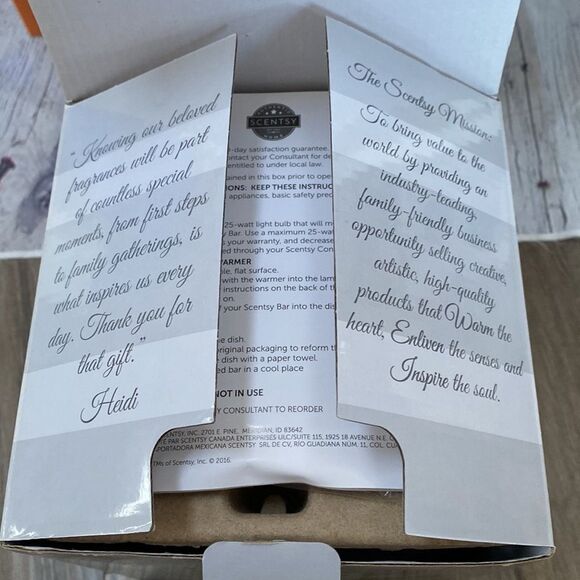 "Knowing our beloved
fragrances will be part
of countless special
moments, from first steps
to family gatherings, is
what inspires us every
day. Thank you for
that gift."
Heidi
SCENTSY
-day satisfaction guarantee.
ontact your Consultant for de
entitled to under local law.
ained in this box prior to ope
IONS: KEEP THESE INSTRUC
appliances, basic safety prec
25-watt light bulb that will m
y Bar. Use a maximum 25-wat
s your warranty, and decrease
ed through your Scentsy Con
WARMER
le, flat surface.
with the warmer into the larg
instructions on the back of th
on.
f your Scentsy Bar into the dis
e dish.
original packaging to reform t
e dish with a paper towel.
ed bar in a cool place
NOT IN USE
Y CONSULTANT TO REORDER
SCENTSY, INC. 2701 E. PINE, MERIDIAN, ID 83642
E PAR SCENTSY CANADA ENTERPRISES ULC/SUITE 115, 1925 18 AVENUE N.E. C
PORTADORA MEXICANA SCENTSY, SRL DE CV, RÍO GUADIANA NÚM. 11, COL. CU
TMs of Scentsy, Inc. © 2016.
The Scentsy Mission:
To bring value to the
world by providing an
industry-leading,
family-friendly business
opportunity selling creative,
artistic, high-quality
products that Warm the
heart, Enliven the senses and
Inspire the soul.